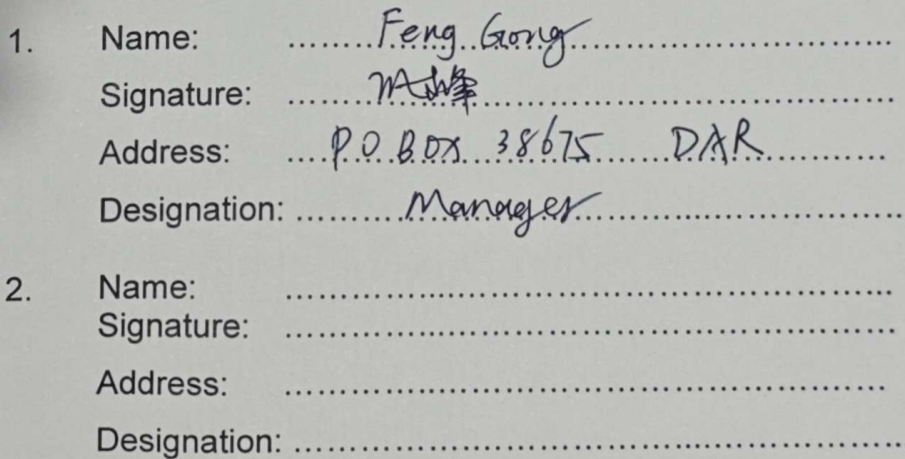 1. Name: Feng Gong
Signature: 峰
Address: P.O BOX 38675 DAR
Designation: Manager
2. Name:
Signature:
Address:
Designation: